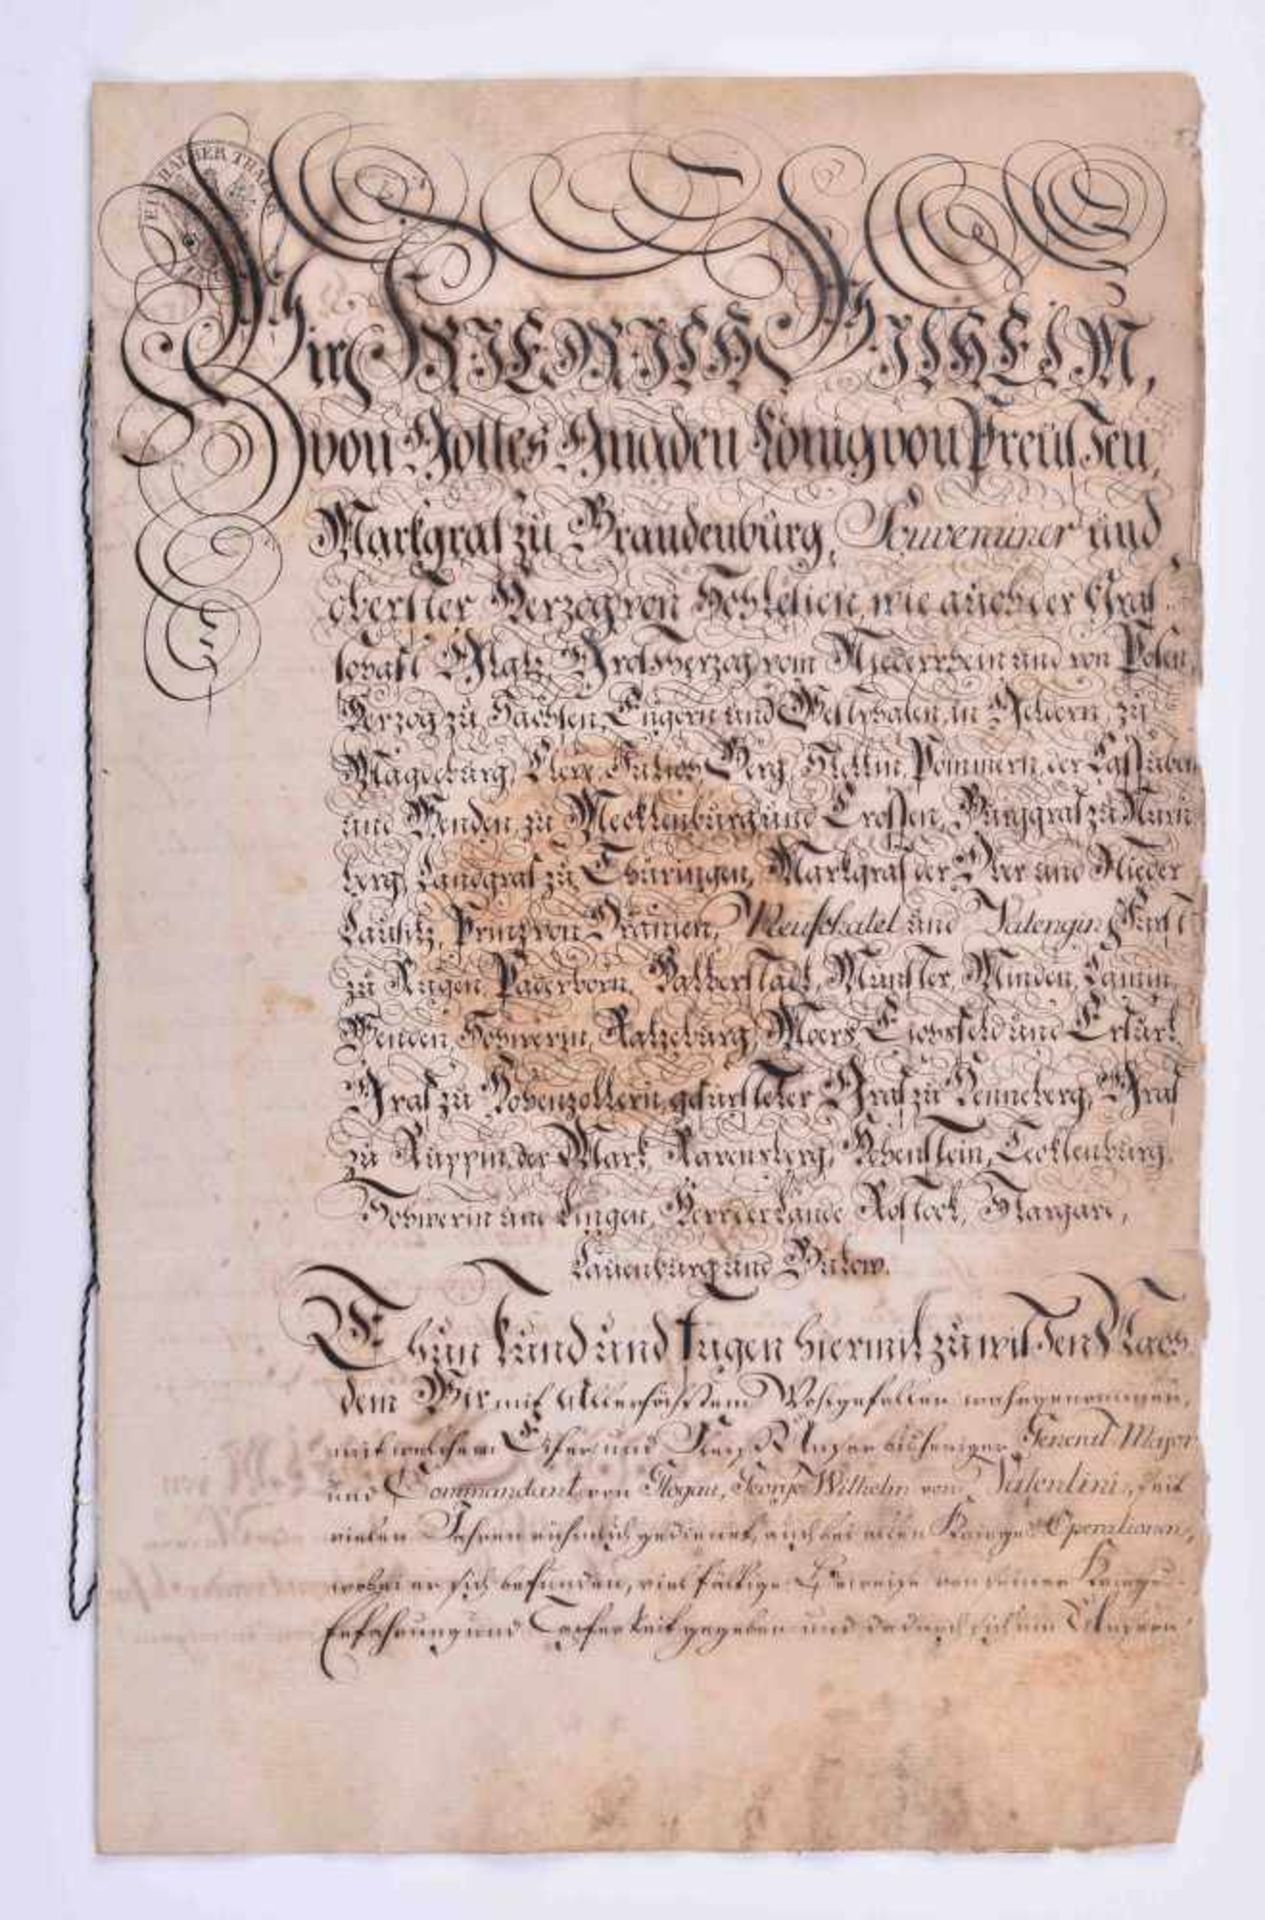 EIN HALBER THALER
Wir FRIEDRICH WILHELM,
von Gottes Gnaden König von Preußen,
Markgraf zu Brandenburg, Souverainer und
oberster Herzog von Schlesien, wie auch der Graf
schaft Glatz, Großherzog vom Niederrhein und von Posen,
Herzog zu Sachsen, Engern und Westphalen, in Geldern, zu
Magdeburg, Cleve, Jülich, Berg, Stettin, Pommern, der Cassuben
und Wenden, zu Mecklenburg und Crossen, Burggraf zu Nürn
berg, Landgraf zu Thüringen, Markgraf der Ober und Nieder
Lausitz, Prinz von Oranien, Neufchatel und Valengin, Fürst
zu Rügen, Paderborn, Halberstadt, Münster, Minden, Camin,
Wenden, Schwerin, Ratzeburg, Moers, Eichsfeld und Erfurt,
Graf zu Hohenzollern, gefürsteter Graf zu Henneberg, Graf
zu Ruppin, der Mark, Ravensberg, Hohenstein, Tecklenburg,
Schwerin und Lingen, Herr der Lande Rostock, Stargard,
Lauenburg und Bütow.
Thun kund und fügen hiermit zu wissen Nach
dem Wir mit Allerhöchstem Wohlgefallen wahrgenommen,
mit welchem Eifer und Fleiß Unser bisheriger General Major
und Commandant von Glogau, George Wilhelm von Valentini, seit
vielen Jahren rühmlich gedienet, auch bei allen Kriegs Operationen,
wobei er sich befunden, vielfältige Beweise von seiner Kriegs
Erfahrung und Tapferkeit gegeben und dadurch sich um Unsern